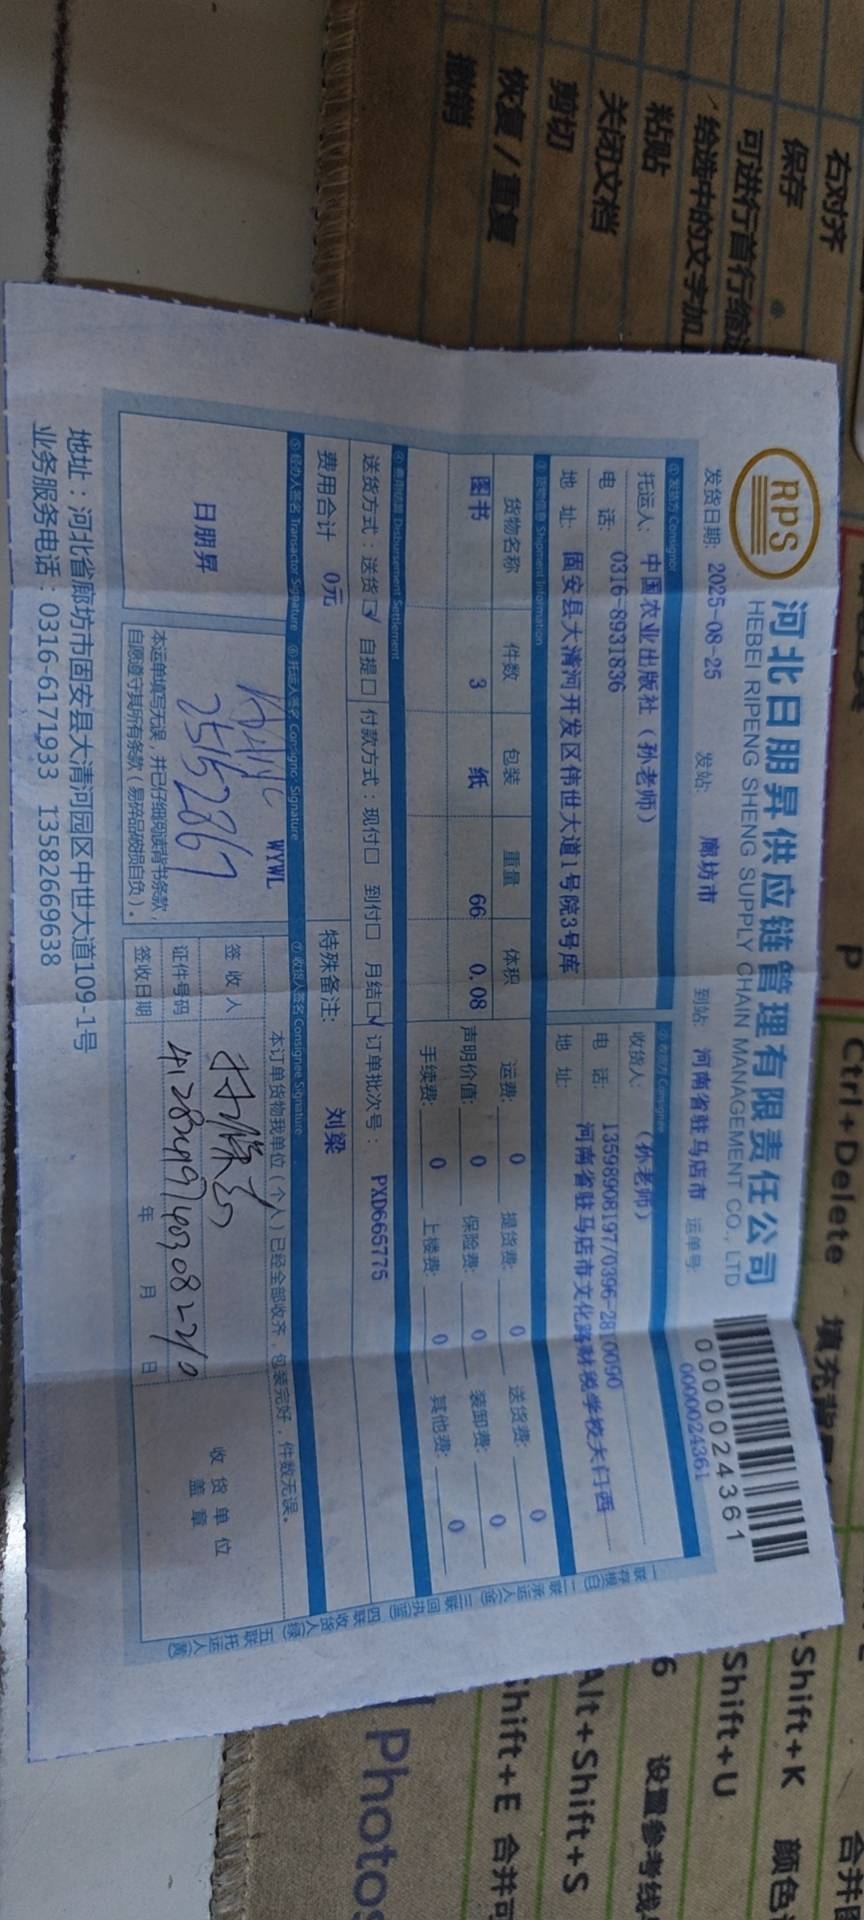 右对齐
保存
可进行首行缩进
给选中的文字加
粘贴
关闭文档
剪切
恢复/重复
撤销
RPS
河北日朋昇供应链管理有限责任公司
HEBEI RIPENG SHENG SUPPLY CHAIN MANAGEMENT CO., LTD
0000024361
发货日期: 2025-08-25 发站: 廊坊市 到站: 河南省驻马店市 运单号: 0000024361
①发货方 Consignor
托运人: 中国农业出版社（孙老师）
电 话: 0316-8931836
地 址: 固安县大清河开发区伟世大道1号院3号库
②收货方 Consignee
收货人: （孙老师）
电 话: 13598908197/0396-2810090
地 址: 河南省驻马店市文化路财税学校大门西
③货物信息 Shipment Information
货物名称 件数 包装 重量 体积
图书 3 纸 66 0.08
运费: 0 提货费: 0 送货费: 0
声明价值: 0 保险费: 0 装卸费: 0
手续费: 0 上楼费: 0 其他费: 0
④费用结算 Disbursement Settlement
送货方式：送货☑ 自提☐ 付款方式：现付☐ 到付☐ 月结☑ 订单批次号： PXD665775
费用合计 0元 特殊备注: 刘梁
⑤经办人签名 Transactor Signature ⑥托运人签名 Consignor Signature ⑦收货人签名 Consignee Signature
日朋昇
WYWL
25152867
本运单填写无误，并已仔细阅读背书条款，
自愿遵守其所有条款（易碎品破损自负）。
本订单货物我单位（个人）已经全部收齐，包装完好，件数无误。
签 收 人
证件号码 412824197403082210
签收日期 年 月 日
收货单位
盖章
一联存根(白) 二联承运人(金) 三联回执(蓝) 四联收货人(绿) 五联托运人(黄)
地址：河北省廊坊市固安县大清河园区中世大道109-1号
业务服务电话：0316-6171933 13582669638
P
Ctrl+Delete 填充
Shift+K 颜色
Shift+U
6 设置参考线
Alt+Shift+S
Shift+E 合并可
合并图
Photos